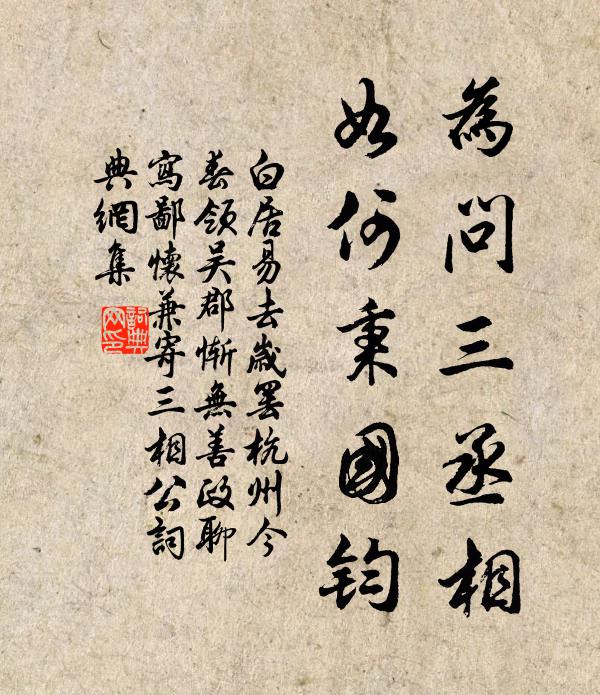 為問三丞相
如何秉國鈞
白居易去歲罷杭州今
春領吳郡慚無善政聊
寫鄙懷兼寄三相公詞
典網集
詞典
网印